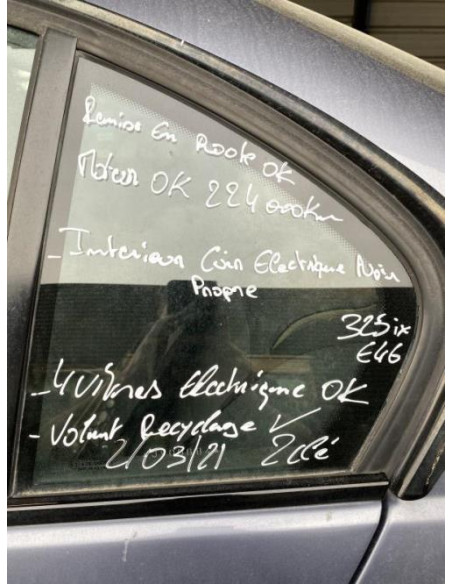 Remise En Route OK
Moteur OK 224 000 Km
- Interieur Cuir Electrique Noir
Propre
325ix
E46
- 4 Vitres Electrique OK
- Volant Recyclage ✓
2/03/21 2 clé